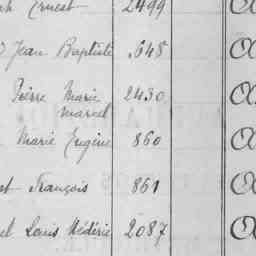 Ernest 2499
Jean Baptiste 648
Pierre Marie 2430
Marcel
Marie Eugène 860
François 861
Louis Médéric 2087